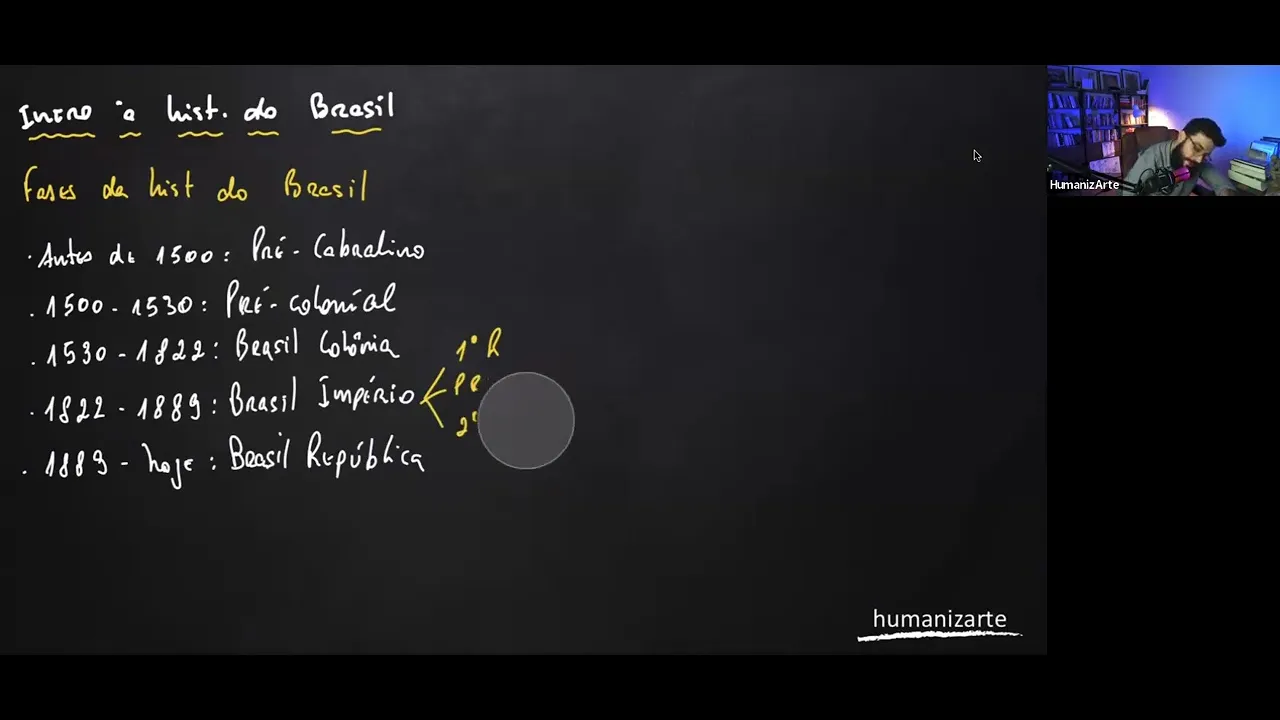 Intro à hist. do Brasil
Fases da hist do Brasil
· Antes de 1500: Pré-Cabralino
· 1500-1530: Pré-colonial
· 1530-1822: Brasil Colônia
· 1822-1889: Brasil Império
1º R
PR
2º
· 1889-hoje: Brasil República
HumanizArte
humanizarte